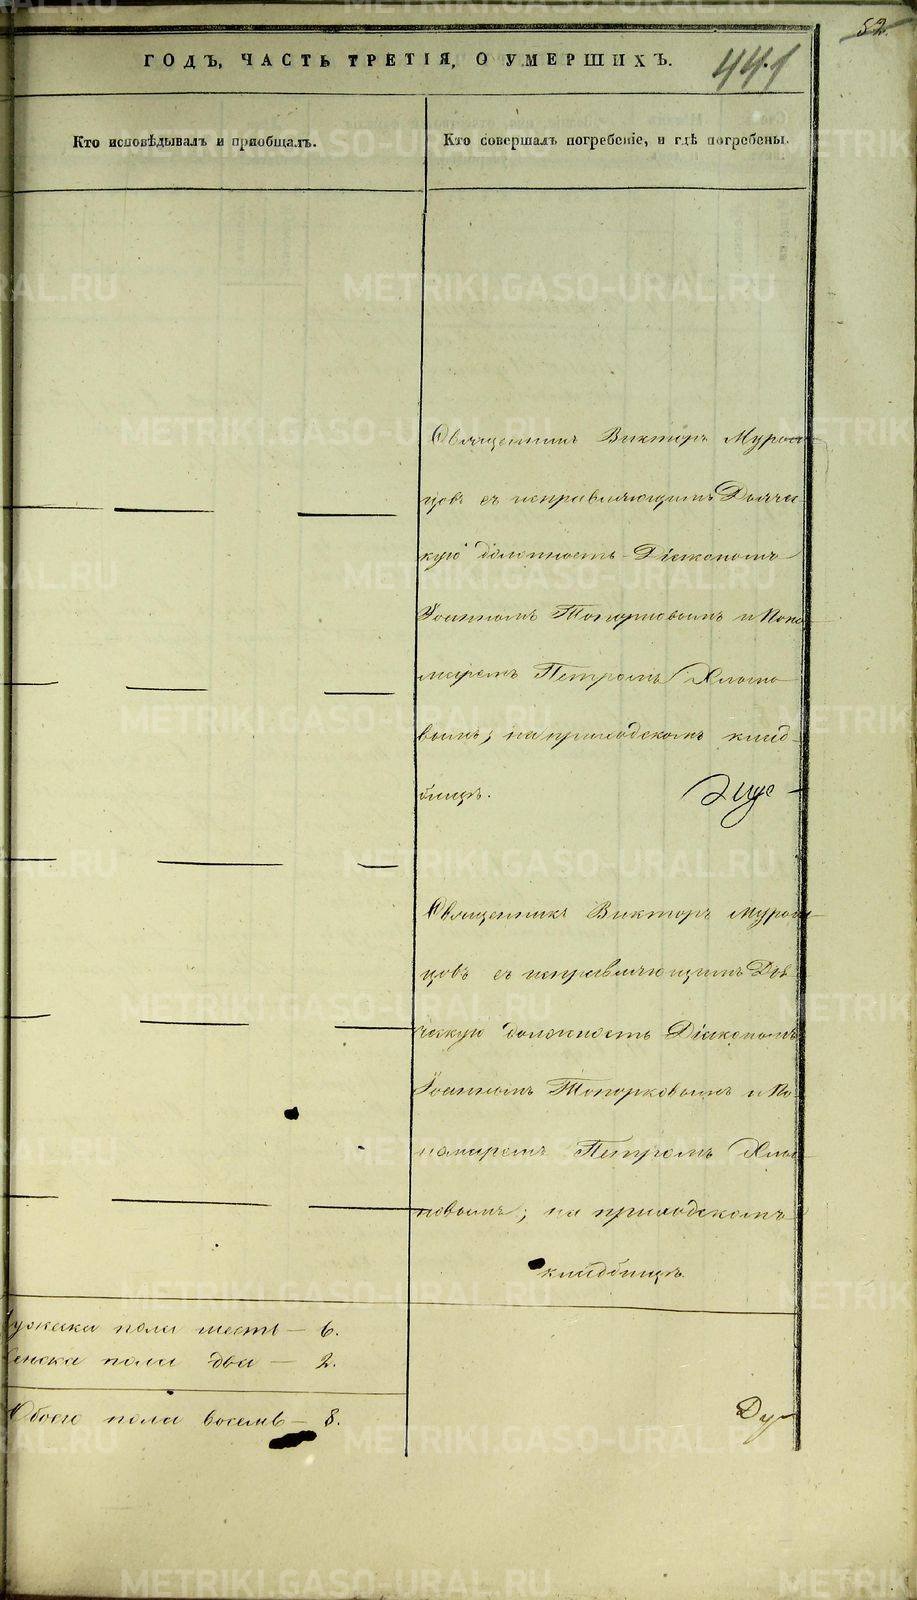 52.
ГОДЪ, ЧАСТЬ ТРЕТІЯ, О УМЕРШИХЪ.
441
Кто исповѣдывалъ и пріобщалъ.
Кто совершалъ погребеніе, и гдѣ погребены.
Священникъ Викторъ Муром-
цовъ съ исправляющимъ Дьячес-
кую должность Діакономъ
Іоанномъ Топорковымъ и Поно-
маремъ Петромъ
вымъ; на приходскомъ клад-
бищѣ.
Священникъ Викторъ Муром-
цовъ съ исправляющимъ Дья-
ческую должность Діакономъ
Іоанномъ Топорковымъ и По-
номаремъ Петромъ
новымъ; на приходскомъ
кладбищѣ.
Мужска пола шесть — 6.
Женска пола два — 2.
Обоего пола восемь — 8.
METRIKI.GASO-URAL.RU